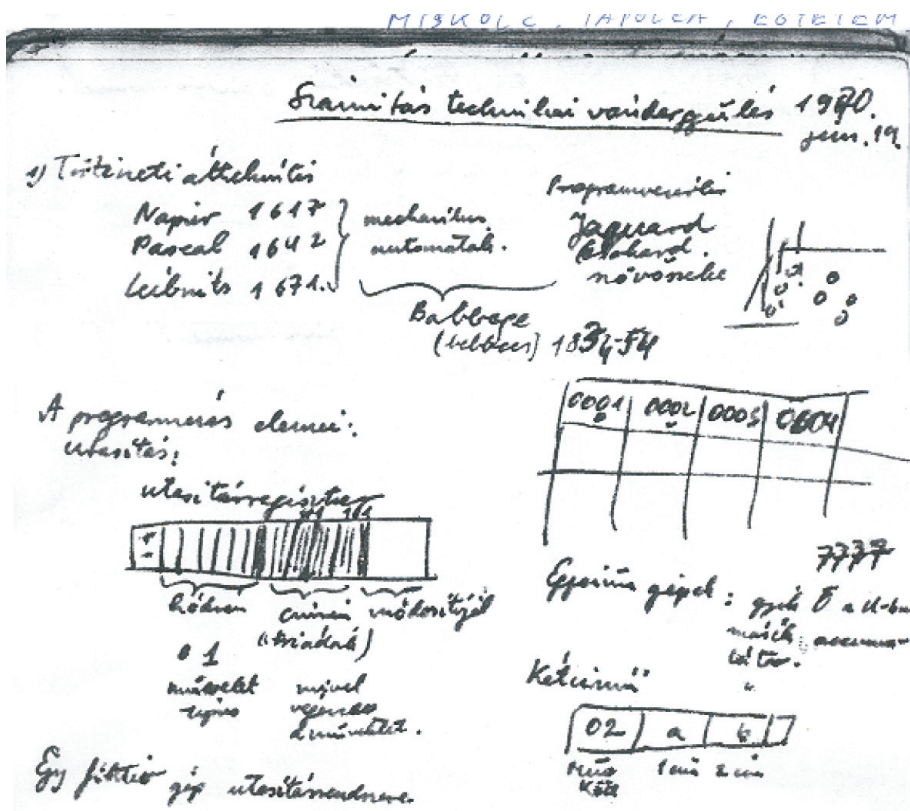 MISKOLC, TAPOLCA, EGYETEM
Számitás technikai vándorgyűlés 1970.
jún. 19.
1) Történeti áttekintés
Napier 1617
Pascal 1642
Leibnits 1671.
mechanikus
automaták.
Programvezérlés
Jaquard
szövőszéke
Babbage
1834-54
A programmozás elemei:
utasitás:
utasitásregiszter
+
-
kódrész
cimrész
módositójel
(triádák)
0 1
művelet
tipus
mivel
végezzes
a műveletet.
Egy fiktiv gép utasitásrendszere.
0001 0002 0003 0004
7777
Egycimű gépek: egyik
másik
Kétcimű
02 a b
Műv
Kód
1 cim 2 cim